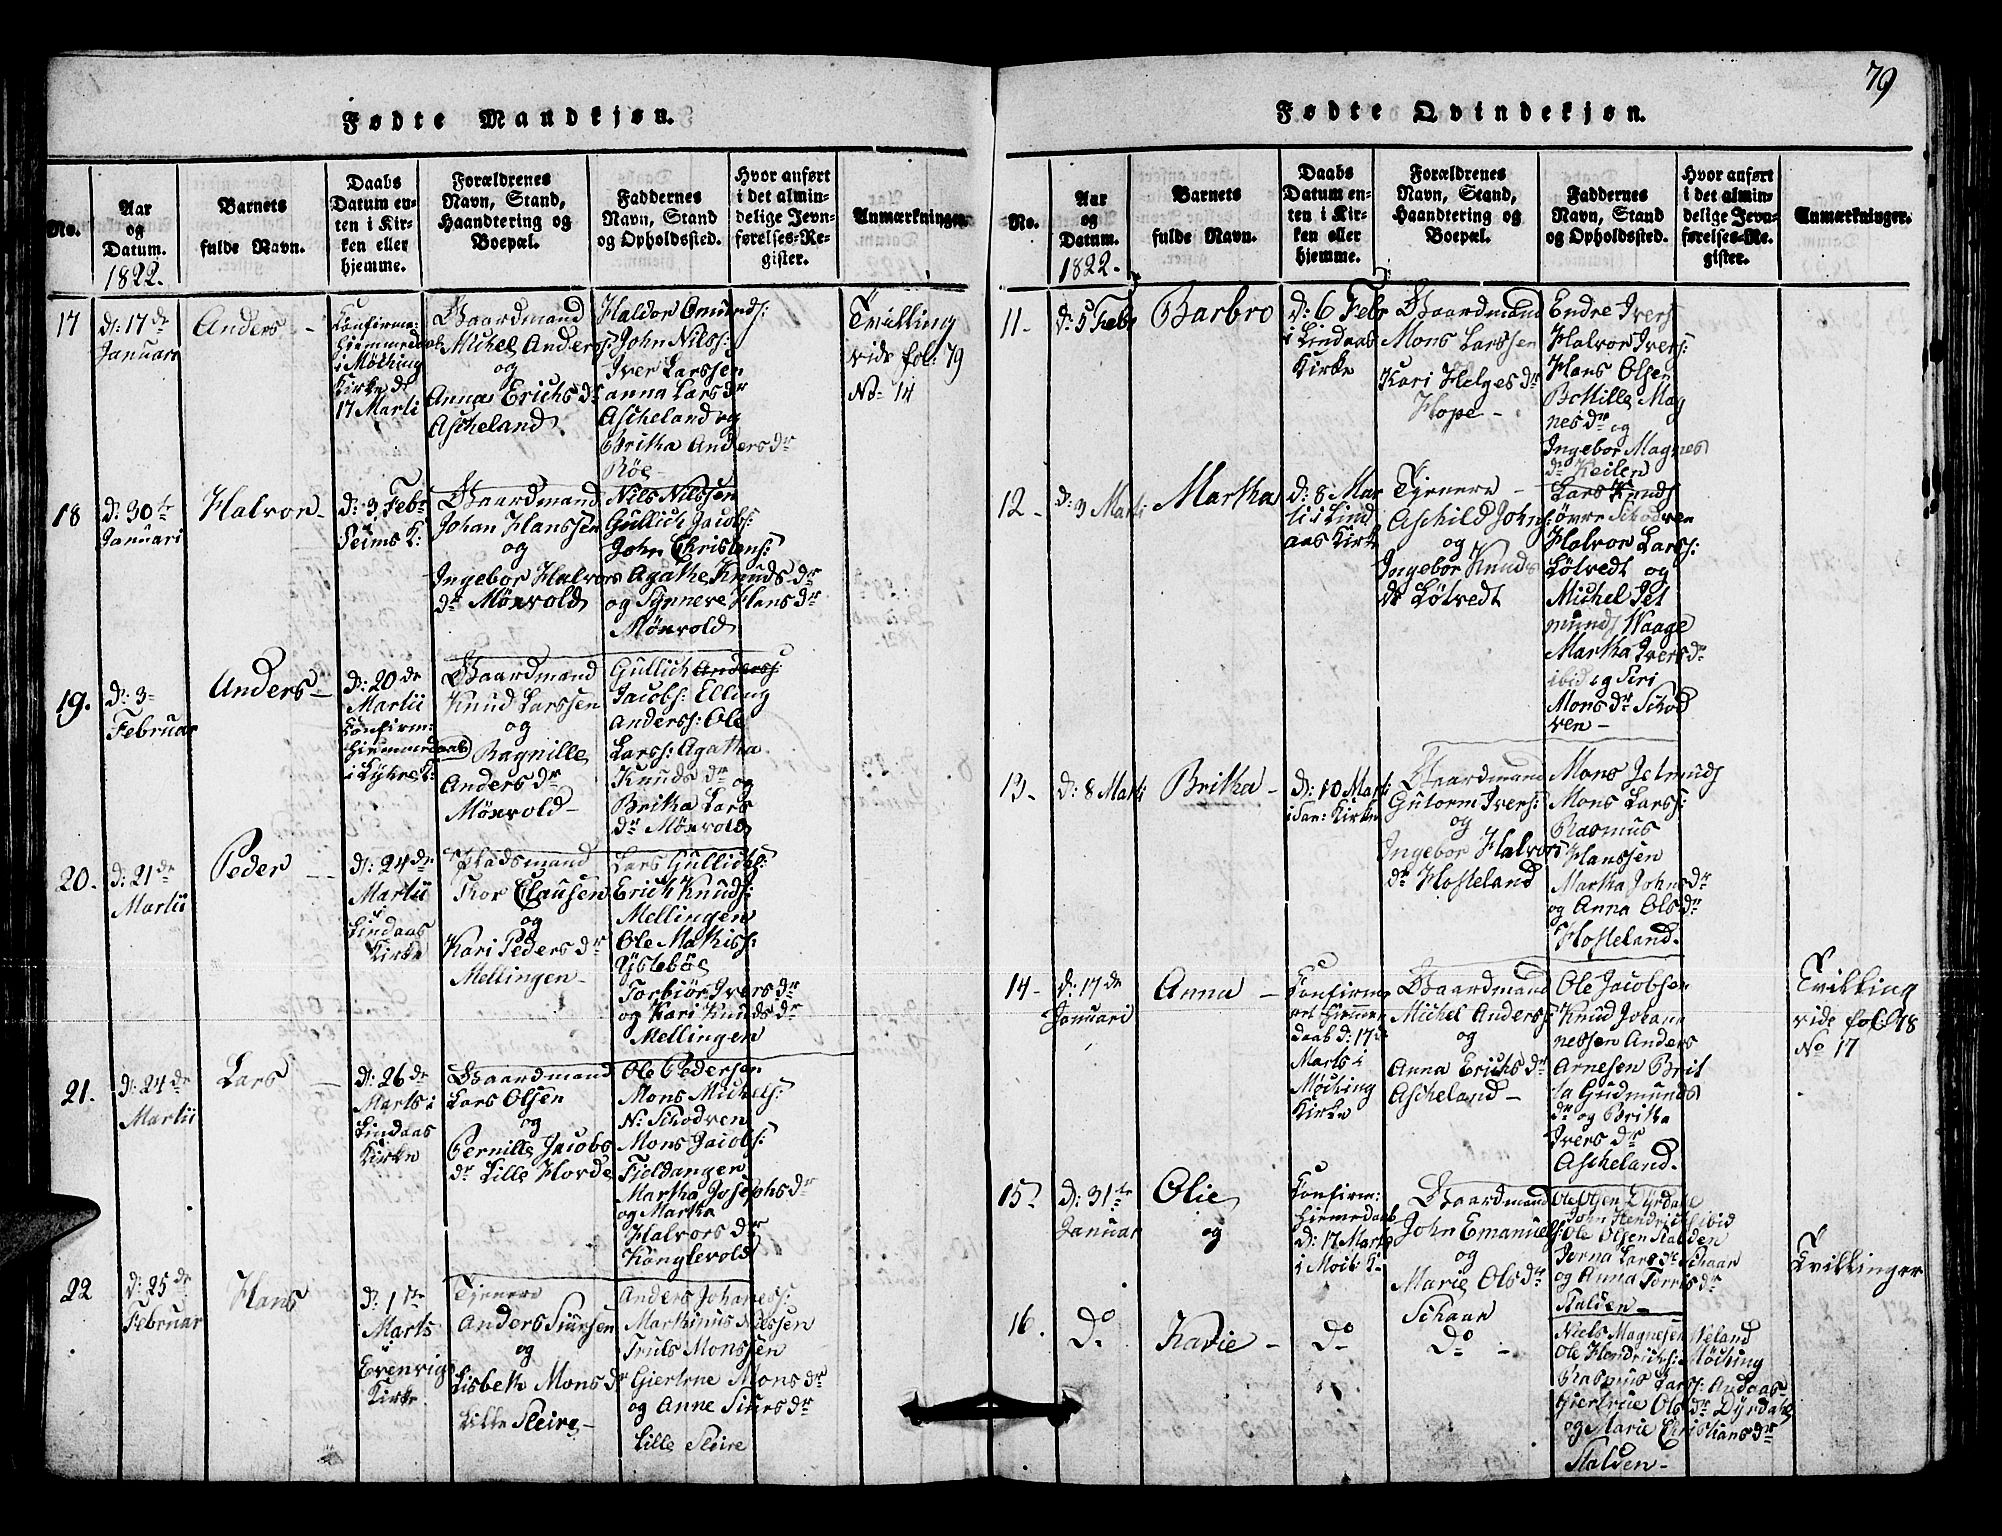 79
Fødte Mandkjøn.
No.
Aar
og
Datum.
1822.
Barnets
fulde Navn.
Daabs
Datum en-
ten i Kir-
ken eller
hjemme.
Forældrenes
Navn, Stand,
Haandtering og
Boepæl.
Faddernes
Navn, Stand
og Opholdssted.
Hvor anført
i det almin-
delige Jevn-
førelses-Re-
gister.
Anmærkninger.
17
d: 17 de
Januari
Anders -
Confirme:
Hiemmedaab
i Møching
Kirke d:
17 Marti
Gaardmand
Michel Anders:
og
Anna Erichs dr
Ascheland
Haldor Omunds:
John Nilss:
Iver Larssen
anna Lars dr
Ascheland og
Britha Anders dr
Röe
Tvilling
vide fol: 79
No 14
18
d: 30 te
Januari
Halvor -
d: 3 Febr
Seims K:
Gaardmand
Johan Hanssen
og
Ingebor Halvors
dr Mönvold
Nils Nilssen
Gullich Jacobs:
John Christens:
Agathe Knuds dr
og Synneve Hans dr
Mönvold
19.
d: 3
Februar
Anders -
d: 20 de
Martii
Confirm:
Hiemmedaab
i Lÿkre K:
Gaardmand
Knud Larssen
og
Ragnille
Anders dr
Mönvold -
Gullich Anderss:
Jacobs: Elling
Anderss: Ole
Larss: Agatha
Knuds dr og
Britha Lars
dr Mönvold
20.
d: 21 de
Martii
Peder - -
d: 24 de
Martii
i
Lindaas
Kirke
Pladsmand
Thor Clausen
og
Kari Peders dr
Mellingen -
Lars Gullichs:
Erich Knuds:
Mellingen
Ole Mathiss:
Ÿsteböe
Torbiör Ivers dr
og Kari Knuds dr
Mellingen
21.
d: 24 de
Martii
Lars -
d: 26 de
Marts i
Lindaas
Kirke
Gaardmand
Lars Olsen
og
Pernille Jacobs
dr Lille Horde
Ole Pedersen
Mons Michels:
N: Schodven
Mons Jacobs:
Fieldangen
Martha Josephs dr
og Martha
Halvors dr
Könglevold
22
d: 25 de
Februar
Hans
d: 1 te
Marts
i
Evenvig
Kirke
Tjenere
Anders Siursen
og
Lisbeth Mons dr
Lille Sleire -
Anders Johaness:
Marthinus Nilssen
Truls Monssen
Giertrue Mons dr
og Anne Siurs dr
Lille Sleire
Fødte Qvindekjøn.
No.
Aar
og
Datum.
1822.
Barnets
fulde Navn.
Daabs
Datum en-
ten i Kir-
ken eller
hjemme.
Forældrenes
Navn, Stand,
Haandtering og
Boepæl.
Faddernes
Navn, Stand
og Opholdssted.
Hvor anført
i det almin-
delige Jevn-
førelses-Re-
gister.
Anmærkninger.
11 -
d: 5 Febr
Barbro
d: 6 Febr
i Lindaas
Kirke
Gaardmand
Mons Larssen
Kari Helges dr
Hope -
Endre Ivers
Halvor Ivers:
Hans Olsen
Botille Mag
nes dr og
Ingebor Magnes
dr Keilen
12 -
d: 3 Marti
Martha
d: 8 Mar
ti i Lind
aas Kirke
Tjenere -
Aschild Johns:
og
Ingebor Knuds
dr Lötvedt
Lars Knuds
övre Schodven
Halvor Larss:
Lötvedt og
Michel Jet
munds Waage
Martha Ivers dr
ibid og Siri
Mons dr Schod
ven -
13 -
d: 8 Marti
Britha -
d: 10 Marti
i San: Kirke
Gaardmand
Gutorm Ivers:
og
Ingebor Halvors
dr Hosteland
Mons Jetmunds
Mons Larss:
Rasmus
Hanssen
Martha Johns dr
og Anna Ols dr
Hosteland.
14 -
d: 17 de
Januari
Anna -
Confirme
ret Hiemme
daab d: 17 de
Marts i
Möching
Kirke
Gaardmand
Michel Anders:
og
Anna Erichs dr
Ascheland -
Ole Jacobsen
Knud Johan
nessen Anders
Arnesen Brit
ta Gudmunds
dr og Britha
Ivers dr
Ascheland.
Tvilling
vide fol: 78
No 17
15
d: 31 te
Januar
Olie
og
Confirm:
Hiemedaab
d: 17 Marts
i Möch K:
Gaardmand
John Emanuels:
og
Marie Ols dr
Schaar
Ole Olsen Dÿrdale
John Hendrichs ibid
Ole Olsen Stalden
Jorna Lars dr Schaar
og Anna Torris dr
Stalden -
Tvillinger
16.
Do
Karie -
Do
Do -
Niels Magnesen Neland
Ole Hendrichs: Möching
Rasmus Larss: Andaas
Giertrue Ols dr Dÿrdahl
og Marie Christians dr
Stalden -